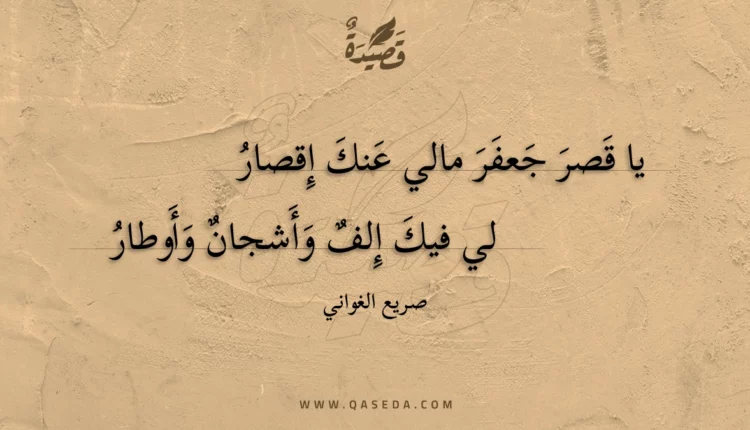 قَصيدَةٌ
يا قَصرَ جَعفَرَ مالي عَنكَ إِقصارُ
لي فيكَ إِلفٌ وَأَشجانٌ وَأَوطارُ
صريع الغواني
WWW.QASEDA.COM